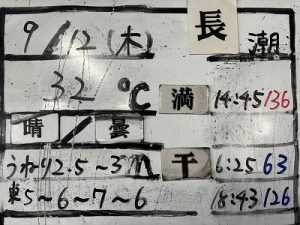 9/12(木) 長 潮
32℃ 満 14:45 136
晴/曇
うねり2.5~3m 干 6:25 63
東5~6~7~6 18:43 126